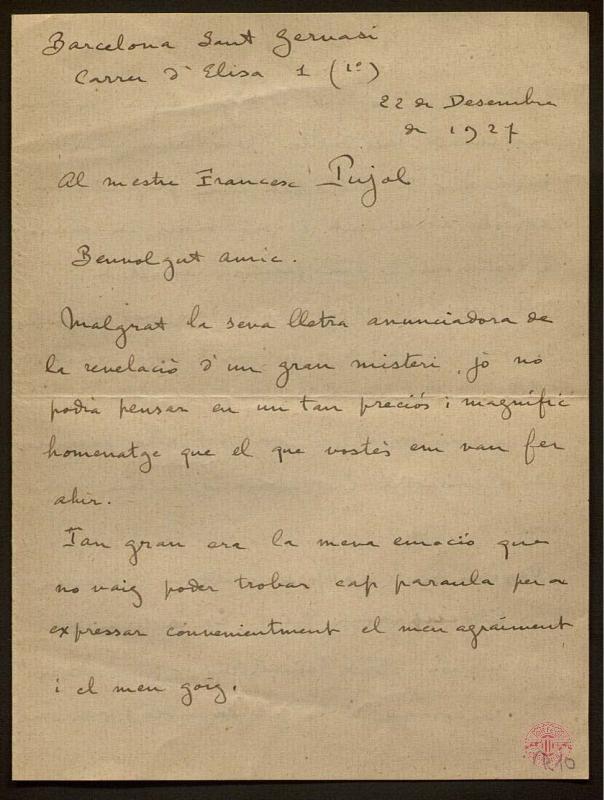 Barcelona Sant Gervasi
Carrer d'Elisa 1 (1º)
22 de Desembre
de 1927
Al mestre Francesc Pujol
Benvolgut amic.
Malgrat la seva lletra anunciadora de
la revelació d'un gran misteri, jo no
podia pensar en un tan preciós i magnífic
homenatge que el que vostès em van fer
ahir.
Tan gran era la meva emoció que
no vaig poder trobar cap paraula per a
expressar convenientment el meu agraiment
i el meu goig.